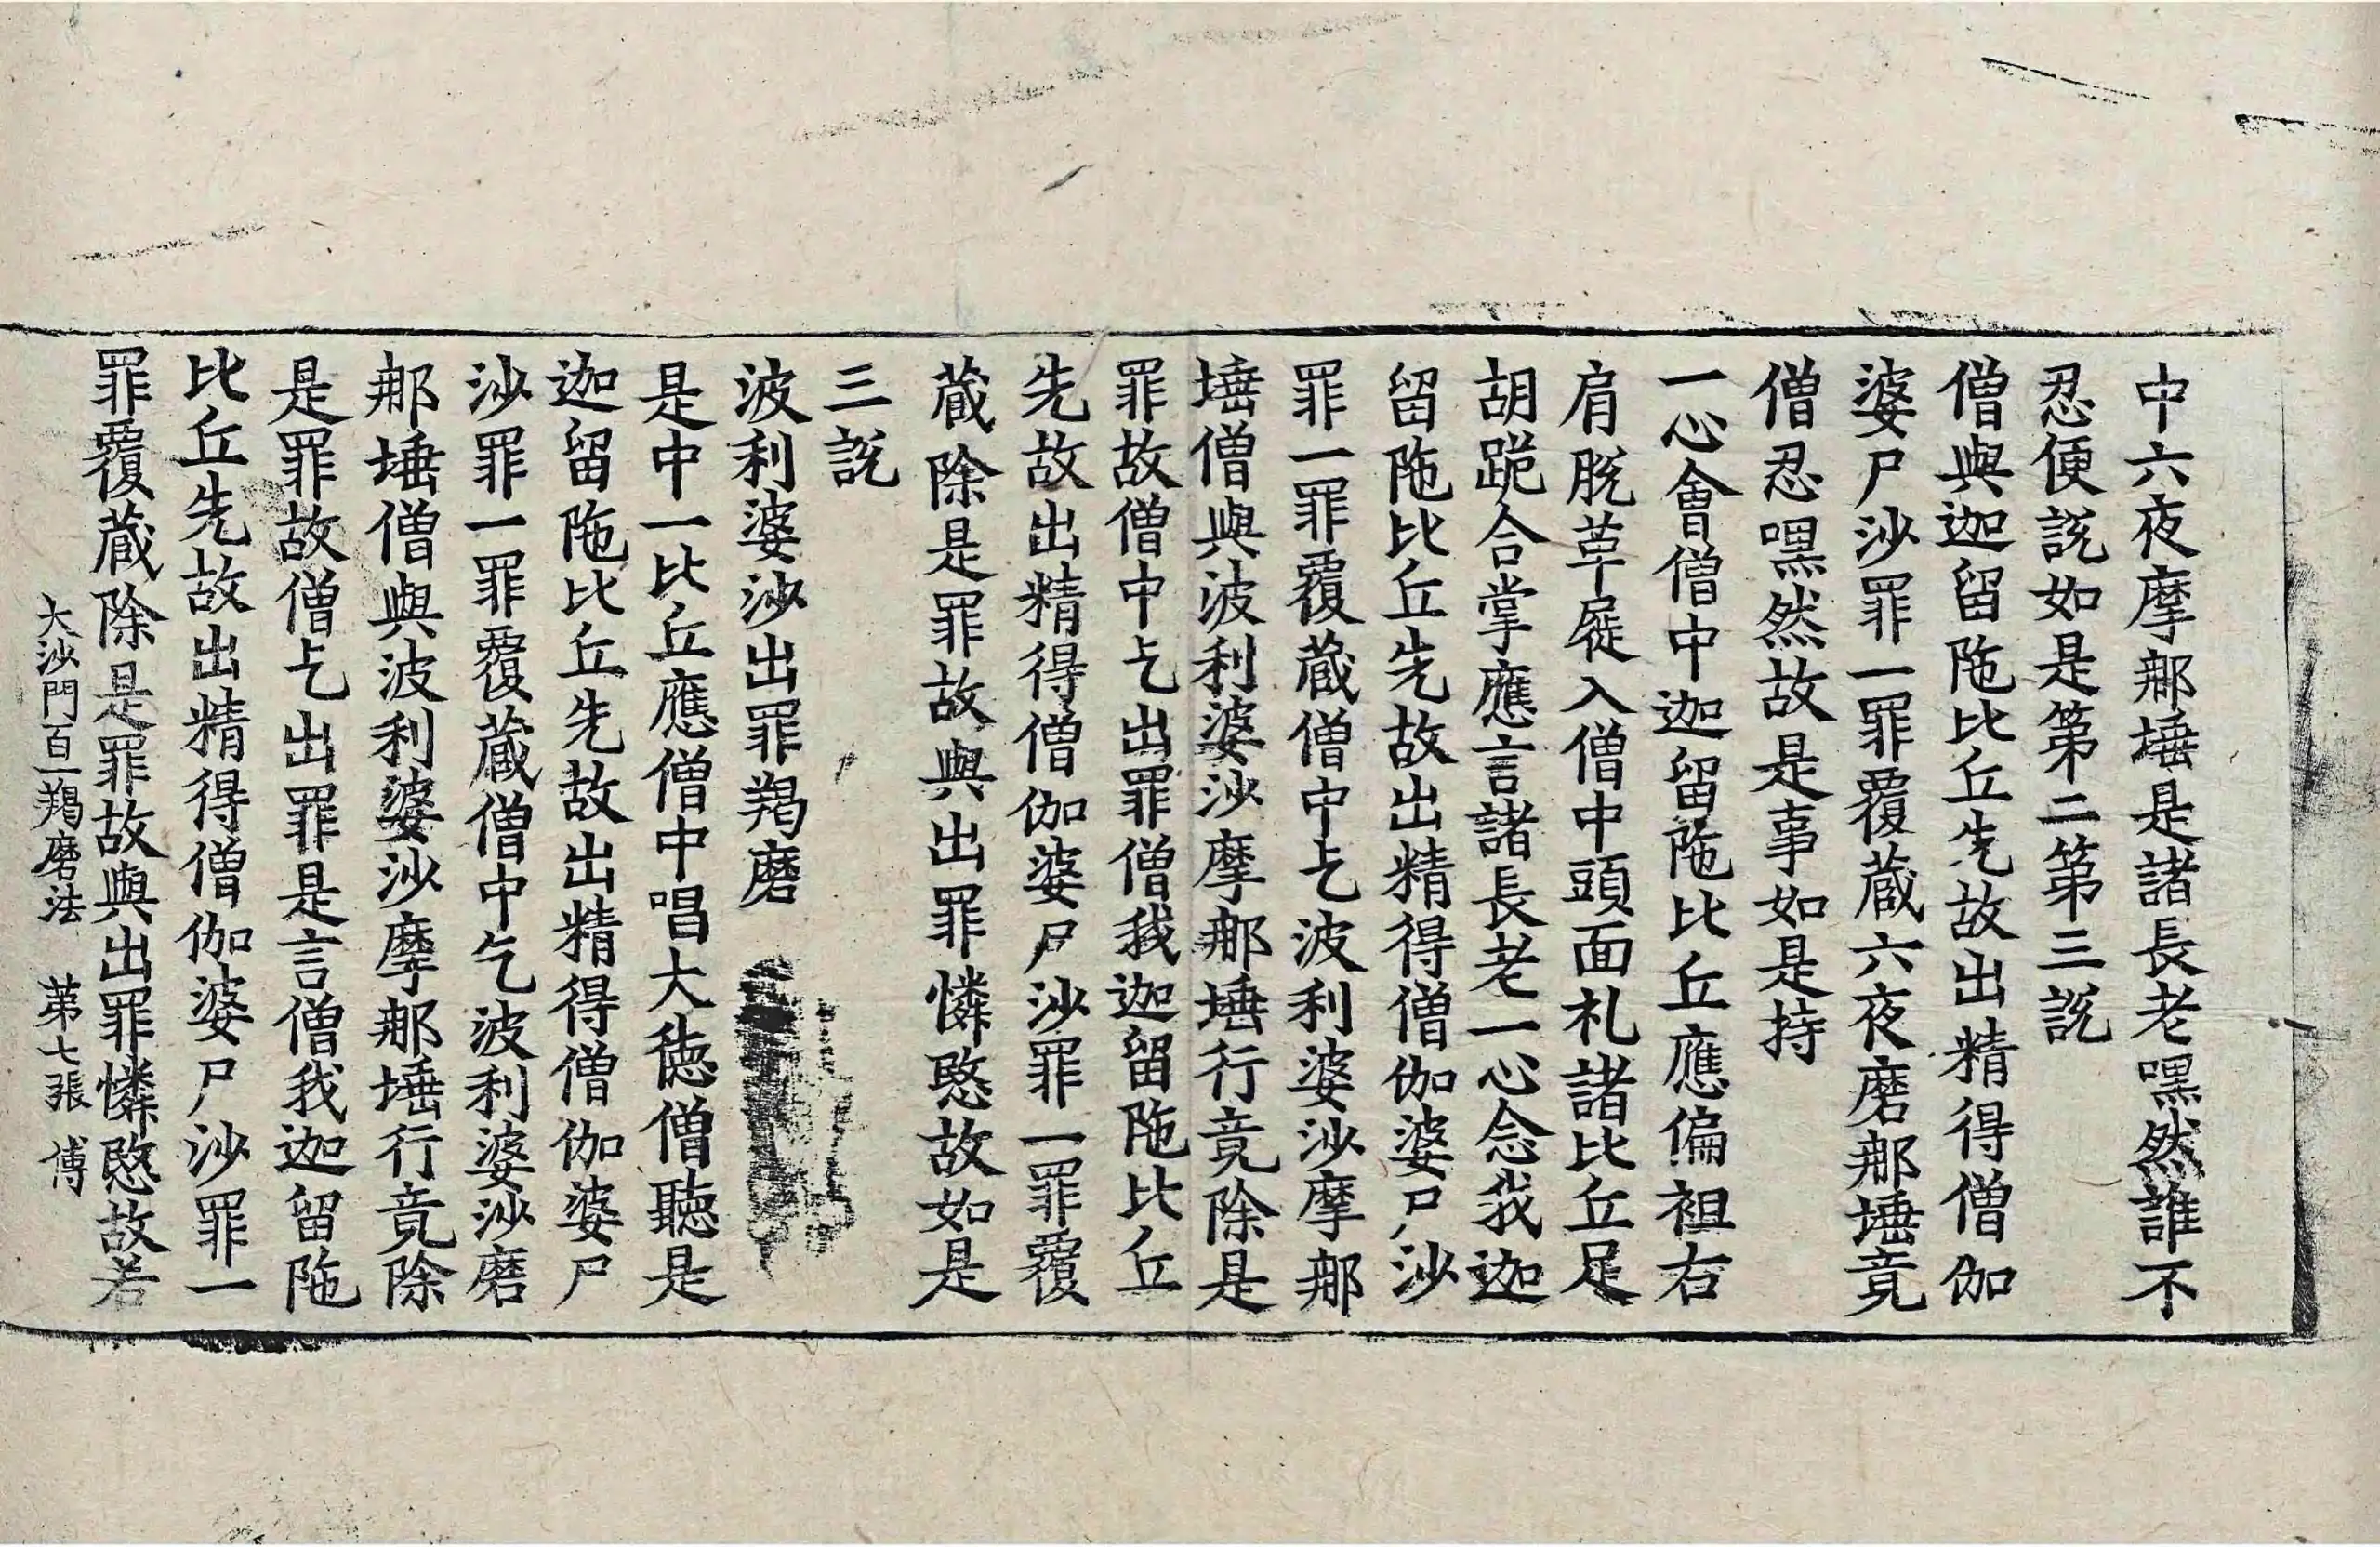 中六夜摩那埵是諸長老嘿然誰不
忍便說如是第二第三說
僧與迦留陁比丘先故出精得僧伽
婆尸沙罪一罪覆蔵六夜磨那埵竟
僧忍嘿然故是事如是持
一心會僧中迦留陁比丘應偏袒右
肩脫革屣入僧中頭面礼諸比丘足
胡跪合掌應言諸長老一心念我迦
留陁比丘先故出精得僧伽婆尸沙
罪一罪覆蔵僧中乞波利婆沙摩那
埵僧與波利婆沙摩那埵行竟除是
罪故僧中乞出罪僧我迦留陁比丘
先故出精得僧伽婆尸沙罪一罪覆
蔵除是罪故與出罪憐愍故如是
三說
波利婆沙出罪羯磨
是中一比丘應僧中唱大德僧聽是
迦留陁比丘先故出精得僧伽婆尸
沙罪一罪覆蔵僧中乞波利婆沙磨
那埵僧與波利婆沙摩那埵行竟除
是罪故僧乞出罪是言僧我迦留陁
比丘先故出精得僧伽婆尸沙罪一
罪覆蔵除是罪故與出罪憐愍故若
大沙門百一羯磨法 苐七張 傅